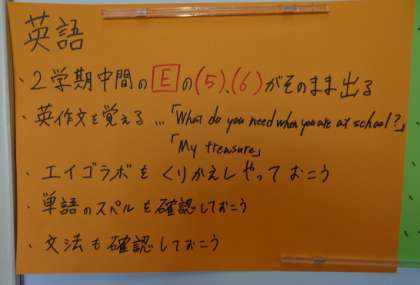 英語
・2学期中間の E の(5)、(6)がそのまま出る
・英作文を覚える…「What do you need when you are at school?」
「My treasure」
・エイゴラボをくりかえしやっておこう
・単語のスペルも確認しておこう
・文法も確認しておこう